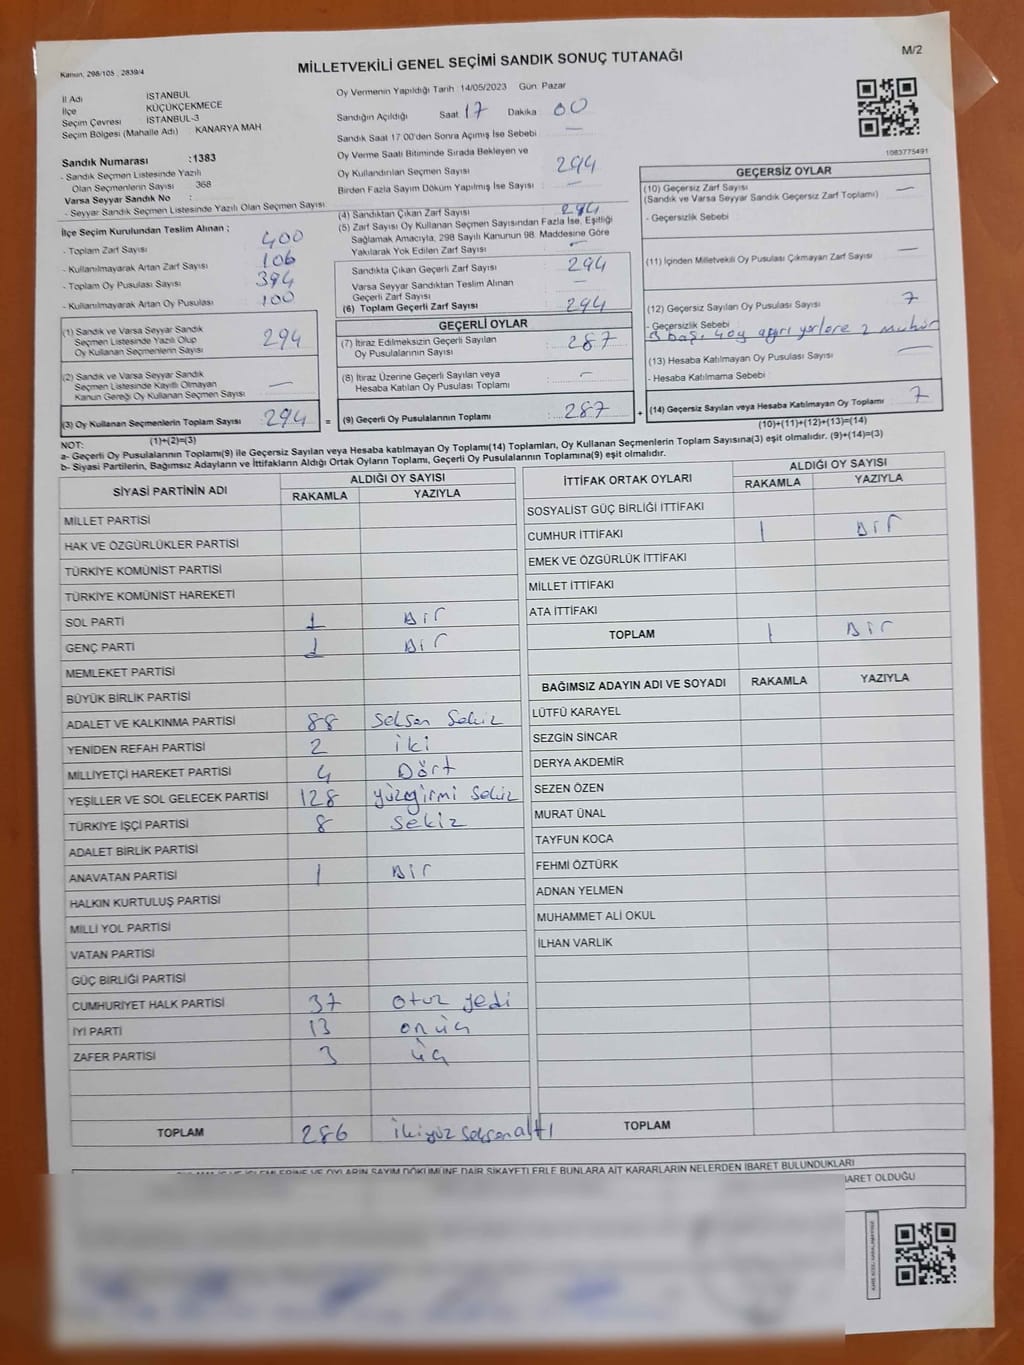 Kanun, 298/105 , 2839/4
MİLLETVEKİLİ GENEL SEÇİMİ SANDIK SONUÇ TUTANAĞI
M/2
İl Adı İSTANBUL
İlçe KÜÇÜKÇEKMECE
Seçim Çevresi İSTANBUL-3
Seçim Bölgesi (Mahalle Adı) : KANARYA MAH
Sandık Numarası :1383
- Sandık Seçmen Listesinde Yazılı
Olan Seçmenlerin Sayısı : 368
Varsa Seyyar Sandık No :
- Seyyar Sandık Seçmen Listesinde Yazılı Olan Seçmen Sayısı
Oy Vermenin Yapıldığı Tarih :14/05/2023 Gün: Pazar
Sandığın Açıldığı Saat 17 Dakika 00
Sandık Saat 17:00'den Sonra Açımış İse Sebebi : —
Oy Verme Saati Bitiminde Sırada Bekleyen ve
Oy Kullandırılan Seçmen Sayısı 294
Birden Fazla Sayım Döküm Yapılmış İse Sayısı : —
1083775491
İlçe Seçim Kurulundan Teslim Alınan ;
- Toplam Zarf Sayısı 400
- Kullanılmayarak Artan Zarf Sayısı 106
- Toplam Oy Pusulası Sayısı 394
- Kullanılmayarak Artan Oy Pusulası 100
(1) Sandık ve Varsa Seyyar Sandık
Seçmen Listesinde Yazılı Olup
Oy Kullanan Seçmenlerin Sayısı 294
(2) Sandık ve Varsa Seyyar Sandık
Seçmen Listesinde Kayıtlı Olmayan
Kanun Gereği Oy Kullanan Seçmen Sayısı : —
(3) Oy Kullanan Seçmenlerin Toplam Sayısı : 294 =
(4) Sandıktan Çıkan Zarf Sayısı 294
(5) Zarf Sayısı Oy Kullanan Seçmen Sayısından Fazla İse, Eşitliği
Sağlamak Amacıyla, 298 Sayılı Kanunun 98. Maddesine Göre
Yakılarak Yok Edilen Zarf Sayısı —
Sandıkta Çıkan Geçerli Zarf Sayısı 294
Varsa Seyyar Sandıktan Teslim Alınan
Geçerli Zarf Sayısı —
(6) Toplam Geçerli Zarf Sayısı 294
GEÇERLİ OYLAR
(7) İtiraz Edilmeksizin Geçerli Sayılan
Oy Pusulalarının Sayısı 287
(8) İtiraz Üzerine Geçerli Sayılan veya
Hesaba Katılan Oy Pusulası Toplamı —
(9) Geçerli Oy Pusulalarının Toplamı 287 +
GEÇERSİZ OYLAR
(10) Geçersiz Zarf Sayısı —
(Sandık ve Varsa Seyyar Sandık Geçersiz Zarf Toplamı)
- Geçersizlik Sebebi
(11) İçinden Milletvekili Oy Pusulası Çıkmayan Zarf Sayısı —
(12) Geçersiz Sayılan Oy Pusulası Sayısı 7
- Geçersizlik Sebebi
3 boş. 4 oy ayrı yerlere 2 mühür
(13) Hesaba Katılmayan Oy Pusulası Sayısı —
- Hesaba Katılmama Sebebi
(14) Geçersiz Sayılan veya Hesaba Katılmayan Oy Toplamı 7
(10)+(11)+(12)+(13)=(14)
NOT: (1)+(2)=(3)
a- Geçerli Oy Pusulalarının Toplamı(9) ile Geçersiz Sayılan veya Hesaba katılmayan Oy Toplamı(14) Toplamları, Oy Kullanan Seçmenlerin Toplam Sayısına(3) eşit olmalıdır. (9)+(14)=(3)
b- Siyasi Partilerin, Bağımsız Adayların ve İttifakların Aldığı Ortak Oyların Toplamı, Geçerli Oy Pusulalarının Toplamına(9) eşit olmalıdır.
SİYASİ PARTİNİN ADI ALDIĞI OY SAYISI
RAKAMLA YAZIYLA
MİLLET PARTİSİ
HAK VE ÖZGÜRLÜKLER PARTİSİ
TÜRKİYE KOMÜNİST PARTİSİ
TÜRKİYE KOMÜNİST HAREKETİ
SOL PARTİ 1 Bir
GENÇ PARTİ 1 Bir
MEMLEKET PARTİSİ
BÜYÜK BİRLİK PARTİSİ
ADALET VE KALKINMA PARTİSİ 88 Seksen Sekiz
YENİDEN REFAH PARTİSİ 2 iki
MİLLİYETÇİ HAREKET PARTİSİ 4 Dört
YEŞİLLER VE SOL GELECEK PARTİSİ 128 yüzyirmi Sekiz
TÜRKİYE İŞÇİ PARTİSİ 8 Sekiz
ADALET BİRLİK PARTİSİ
ANAVATAN PARTİSİ 1 Bir
HALKIN KURTULUŞ PARTİSİ
MİLLİ YOL PARTİSİ
VATAN PARTİSİ
GÜÇ BİRLİĞİ PARTİSİ
CUMHURİYET HALK PARTİSİ 37 otuz yedi
İYİ PARTİ 13 onüç
ZAFER PARTİSİ 3 üç
TOPLAM 286 ikiyüz seksenaltı
İTTİFAK ORTAK OYLARI ALDIĞI OY SAYISI
RAKAMLA YAZIYLA
SOSYALİST GÜÇ BİRLİĞİ İTTİFAKI
CUMHUR İTTİFAKI 1 Bir
EMEK VE ÖZGÜRLÜK İTTİFAKI
MİLLET İTTİFAKI
ATA İTTİFAKI
TOPLAM 1 Bir
BAĞIMSIZ ADAYIN ADI VE SOYADI RAKAMLA YAZIYLA
LÜTFÜ KARAYEL
SEZGİN SİNCAR
DERYA AKDEMİR
SEZEN ÖZEN
MURAT ÜNAL
TAYFUN KOCA
FEHMİ ÖZTÜRK
ADNAN YELMEN
MUHAMMET ALİ OKUL
İLHAN VARLIK
TOPLAM
İŞLEMLERİNE VE OYLARIN SAYIM DÖKÜMÜNE DAİR ŞİKAYETLERLE BUNLARA AİT KARARLARIN NELERDEN İBARET BULUNDUKLARI
BARET OLDUĞU